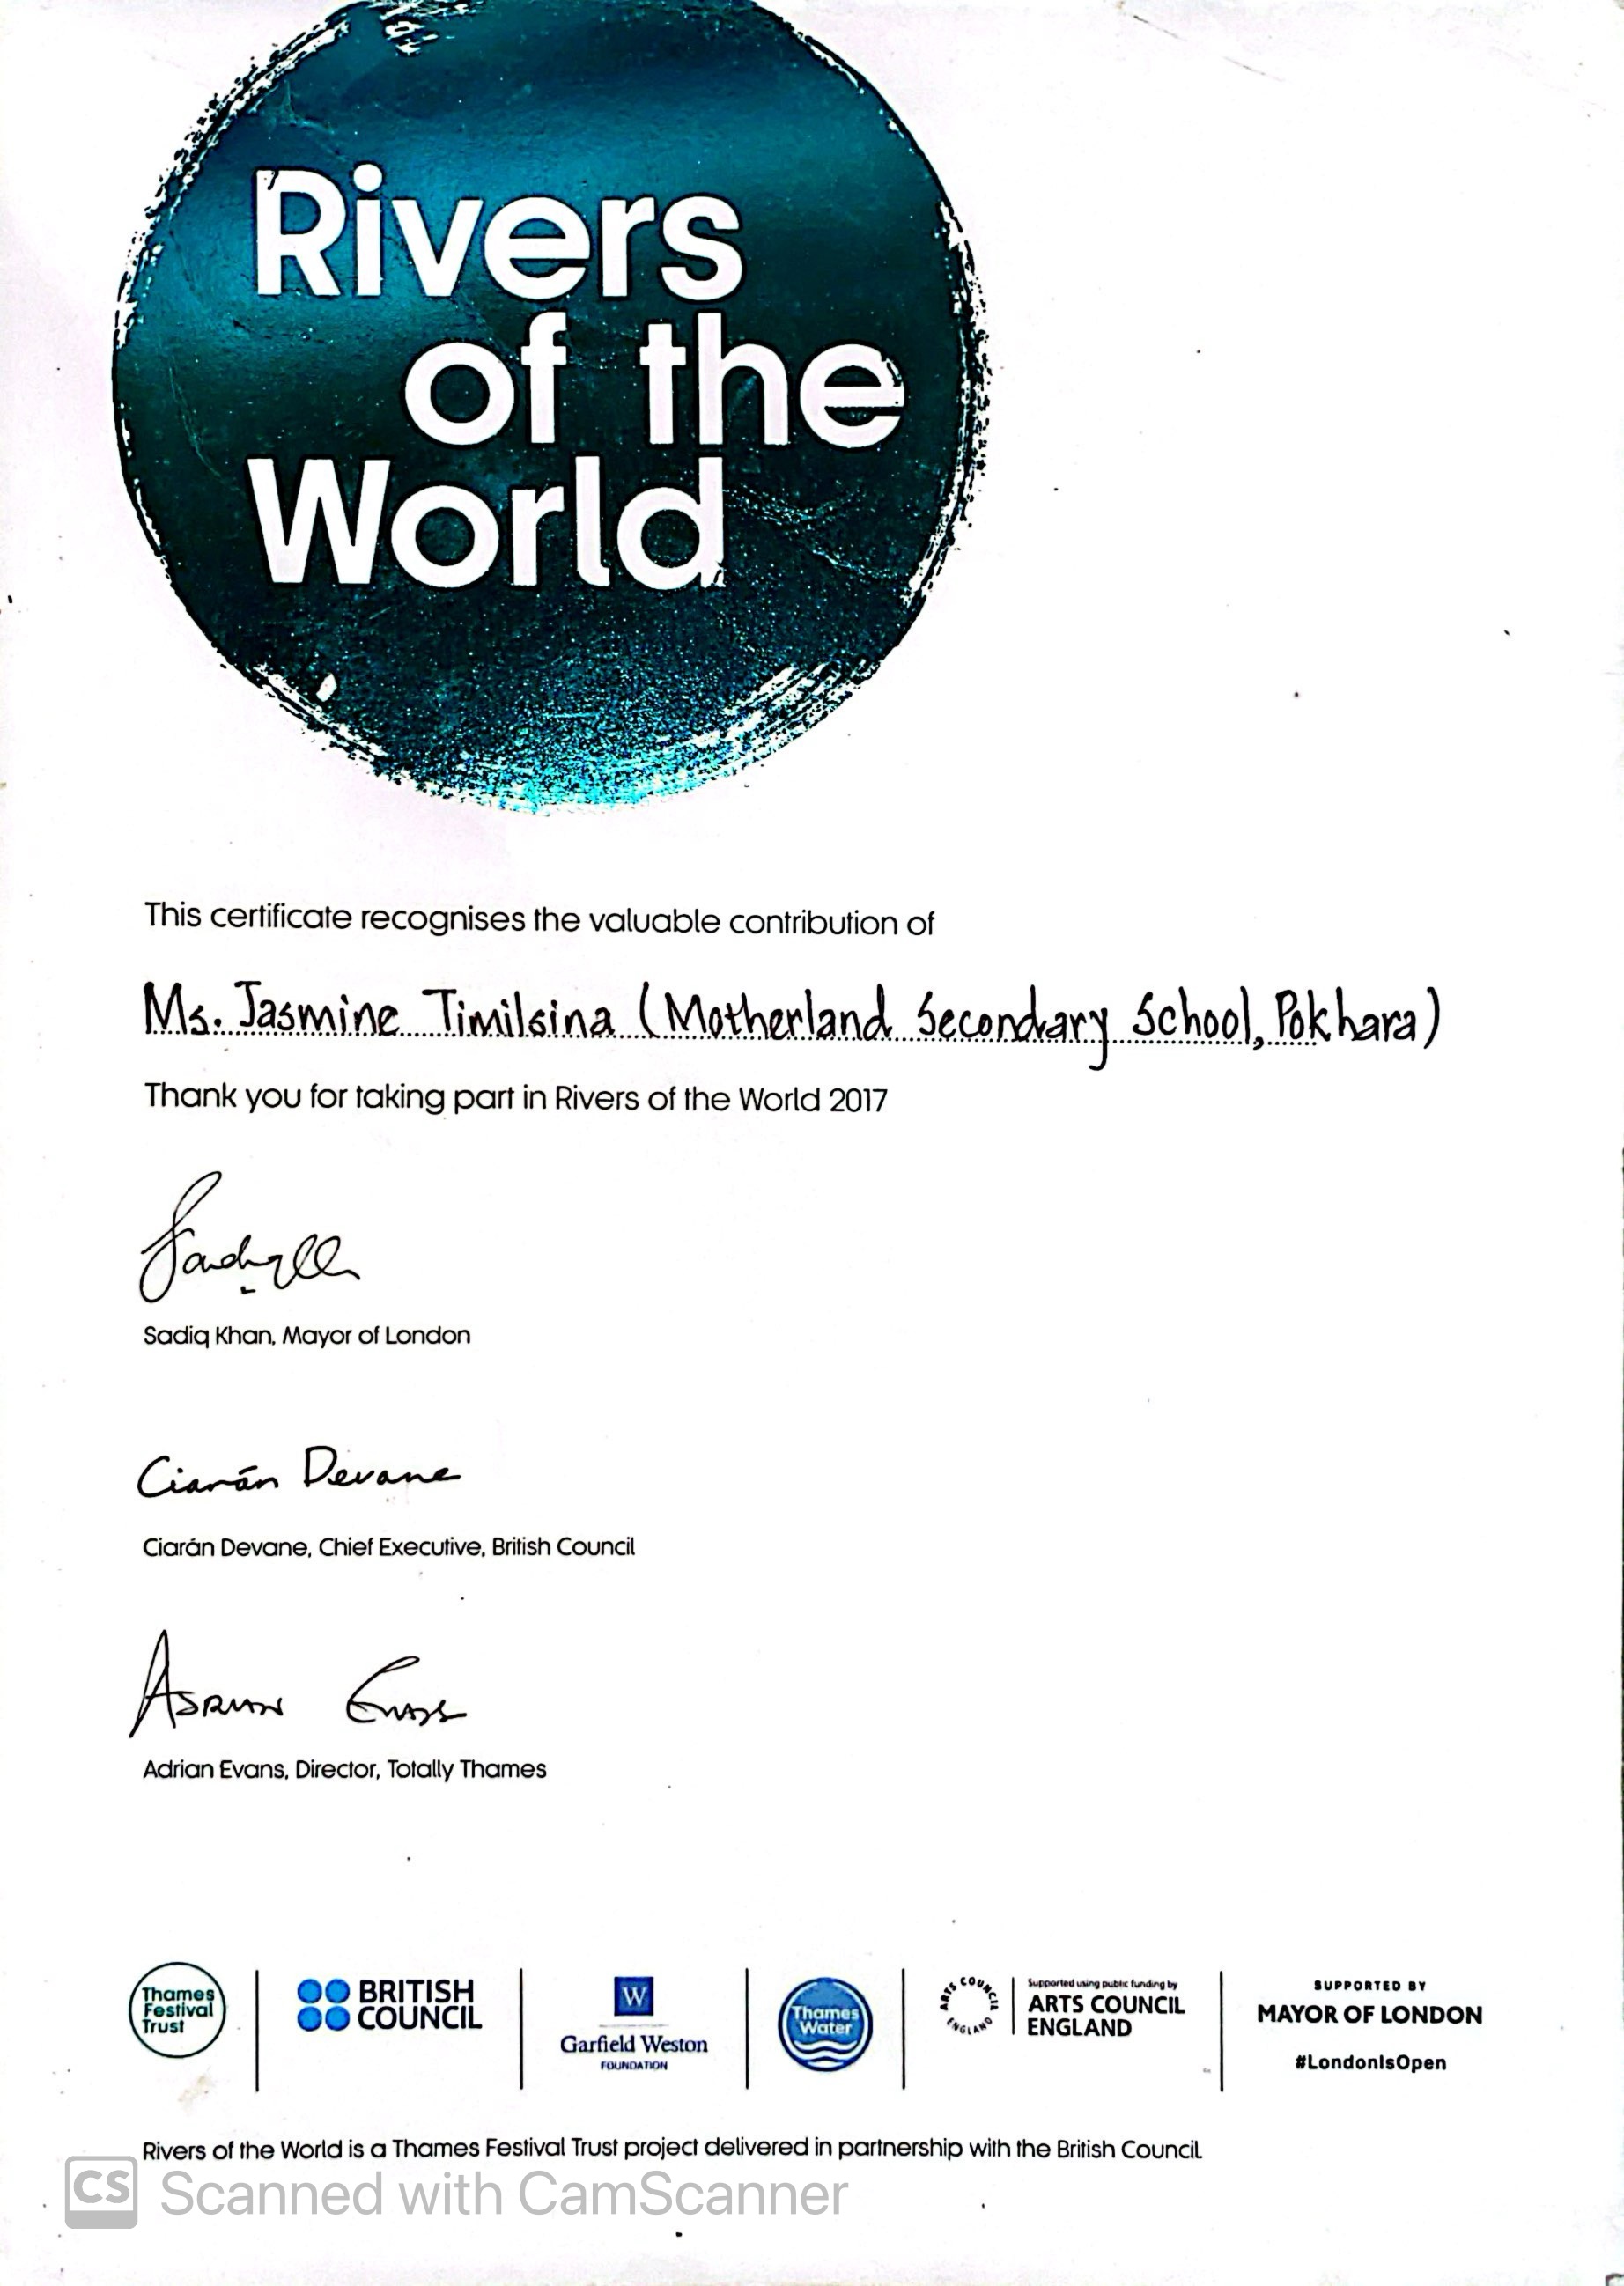 Rivers
of the
World
This certificate recognises the valuable contribution of
Ms. Jasmine Timilsina (Motherland Secondary School, Pokhara)
Thank you for taking part in Rivers of the World 2017
Sadiq Khan, Mayor of London
Ciarán Devane
Ciarán Devane, Chief Executive, British Council
Adrian Evans
Adrian Evans, Director, Totally Thames
Thames
Festival
Trust
BRITISH
COUNCIL
W
Garfield Weston
FOUNDATION
Thames
Water
ARTS COUNCIL
ENGLAND
Supported using public funding by
ARTS COUNCIL
ENGLAND
SUPPORTED BY
MAYOR OF LONDON
#LondonIsOpen
Rivers of the World is a Thames Festival Trust project delivered in partnership with the British Council
CS Scanned with CamScanner